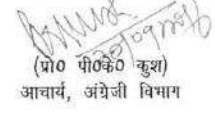 (प्रो0 पी0के0 कुश)
आचार्य, अंग्रेजी विभाग